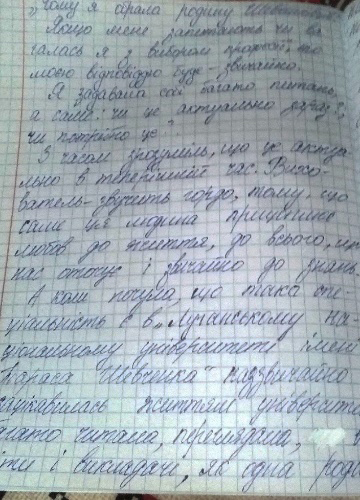 „Чому я обрала родину Шевченк
Якщо мене запитають чи ва
галась я з вибором професії, то
моєю відповіддю буде - звичайно.
Я задавала собі багато питань,
а саме: чи це актуально зараз?,
чи потрібно це
З часом зрозуміла, що це актуа
льно в теперішній час. Вихо-
ватель - звучить гордо, тому, що
саме ця людина прищеплює
любов до життя, до всього, що
нас оточує і звичайно до знань
А коли почула, що така спе-
ціальність є в „Луганському на-
ціональному університеті імені
Тараса Шевченка" надзвичайно
цікавилась життям університе
агато читала, переглядала,
ти і викладачі, як одна роди